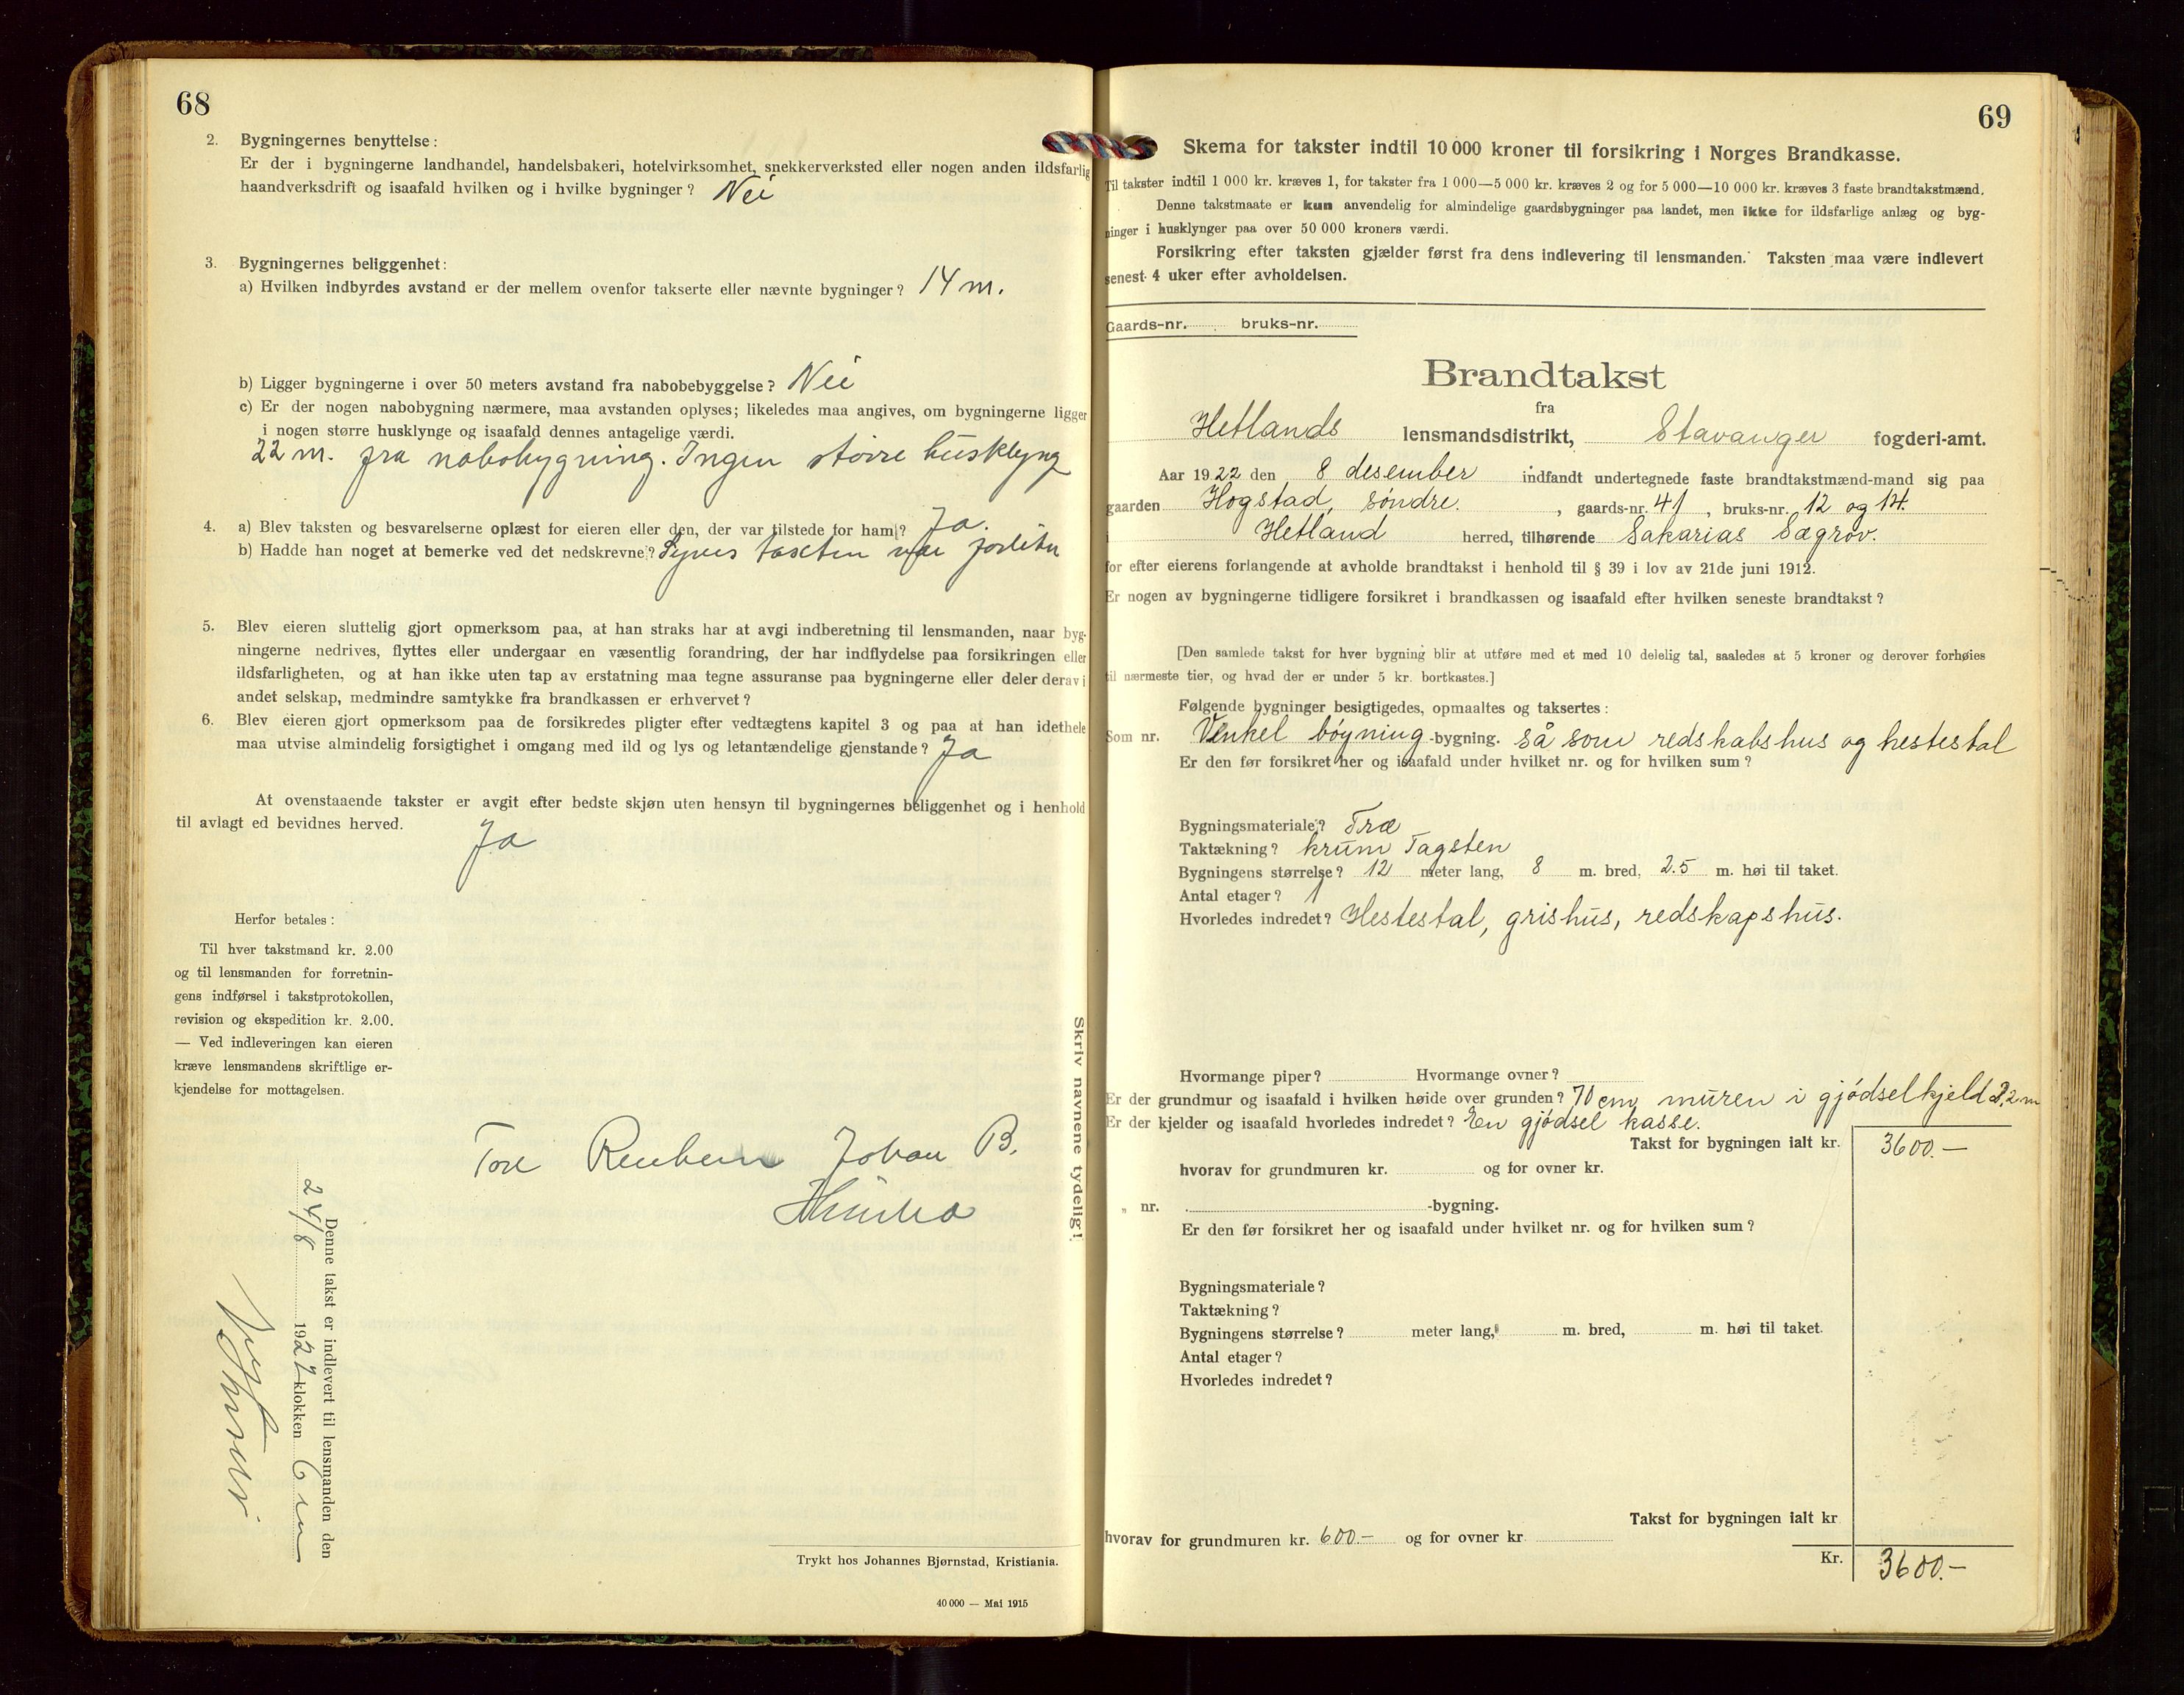 68
2. Bygningernes benyttelse:
Er der i bygningerne landhandel, handelsbakeri, hotelvirksomhet, snekkerverksted eller nogen anden ildsfarlig
haandverksdrift og isaafald hvilken og i hvilke bygninger? Nei
3. Bygningernes beliggenhet:
a) Hvilken indbyrdes avstand er der mellem ovenfor takserte eller nævnte bygninger? 14 m.
b) Ligger bygningerne i over 50 meters avstand fra nabobebyggelse? Nei
c) Er der nogen nabobygning nærmere, maa avstanden oplyses; likeledes maa angives, om bygningerne ligger
i nogen større husklynge og isaafald dennes antagelige værdi.
22 m. fra nabobygning. Ingen större husklyng
4. a) Blev taksten og besvarelserne oplæst for eieren eller den, der var tilstede for ham? Ja.
b) Hadde han noget at bemerke ved det nedskrevne? Synes taxten var forliten
5. Blev eieren sluttelig gjort opmerksom paa, at han straks har at avgi indberetning til lensmanden, naar byg-
ningerne nedrives, flyttes eller undergaar en væsentlig forandring, der har indflydelse paa forsikringen eller
ildsfarligheten, og at han ikke uten tap av erstatning maa tegne assuranse paa bygningerne eller deler derav i
andet selskap, medmindre samtykke fra brandkassen er erhvervet?
6. Blev eieren gjort opmerksom paa de forsikredes pligter efter vedtægtens kapitel 3 og paa at han idethele
maa utvise almindelig forsigtighet i omgang med ild og lys og letantændelige gjenstande? Ja
At ovenstaaende takster er avgit efter bedste skjøn uten hensyn til bygningernes beliggenhet og i henhold
til avlagt ed bevidnes herved. Ja
Herfor betales:
Til hver takstmand kr. 2.00
og til lensmanden for forretnin-
gens indførsel i takstprotokollen,
revision og ekspedition kr. 2.00.
— Ved indleveringen kan eieren
kræve lensmandens skriftlige er-
kjendelse for mottagelsen.
Tore Johan B.
Skriv navnene tydelig!
Denne takst er indlevert til lensmanden den
24/8 1922 klokken 6
Trykt hos Johannes Bjørnstad, Kristiania.
40 000 — Mai 1915
69
Skema for takster indtil 10 000 kroner til forsikring i Norges Brandkasse.
Til takster indtil 1 000 kr. kræves 1, for takster fra 1 000—5 000 kr. kræves 2 og for 5 000—10 000 kr. kræves 3 faste brandtakstmænd.
Denne takstmaate er kun anvendelig for almindelige gaardsbygninger paa landet, men ikke for ildsfarlige anlæg og byg-
ninger i husklynger paa over 50 000 kroners værdi.
Forsikring efter taksten gjælder først fra dens indlevering til lensmanden. Taksten maa være indlevert
senest 4 uker efter avholdelsen.
Gaards-nr. bruks-nr.
Brandtakst
fra
Hetlands lensmandsdistrikt, Stavanger fogderi-amt.
Aar 1922 den 8 desember indfandt undertegnede faste brandtakstmænd-mand sig paa
gaarden Hogstad, söndre. , gaards-nr. 41 , bruks-nr. 12 og 14.
i Hetland herred, tilhørende Sakarias Sægrov.
for efter eierens forlangende at avholde brandtakst i henhold til § 39 i lov av 21de juni 1912.
Er nogen av bygningerne tidligere forsikret i brandkassen og isaafald efter hvilken seneste brandtakst?
[Den samlede takst for hver bygning blir at utføre med et med 10 delelig tal, saaledes at 5 kroner og derover forhøies
til nærmeste tier, og hvad der er under 5 kr. bortkastes.]
Følgende bygninger besigtigedes, opmaaltes og taksertes:
Som nr. Venkel böyning -bygning. så som redskabshus og hestestal
Er den før forsikret her og isaafald under hvilket nr. og for hvilken sum?
Bygningsmateriale? Træ
Taktækning? krum Tagsten
Bygningens størrelse? 12 meter lang, 8 m. bred, 2.5 m. høi til taket.
Antal etager? 1
Hvorledes indredet? Hestestal, grishus, redskapshus.
Hvormange piper? Hvormange ovner?
Er der grundmur og isaafald i hvilken høide over grunden? 70 cm, muren i gjödselkjeld 2,2 m
Er der kjelder og isaafald hvorledes indredet? En gjödsel kasse.
Takst for bygningen ialt kr. 3600.—
hvorav for grundmuren kr. og for ovner kr.
„ nr. -bygning.
Er den før forsikret her og isaafald under hvilket nr. og for hvilken sum?
Bygningsmateriale?
Taktækning?
Bygningens størrelse? meter lang, m. bred, m. høi til taket.
Antal etager?
Hvorledes indredet?
Takst for bygningen ialt kr
hvorav for grundmuren kr. 600.— og for ovner kr
Kr. 3600.—